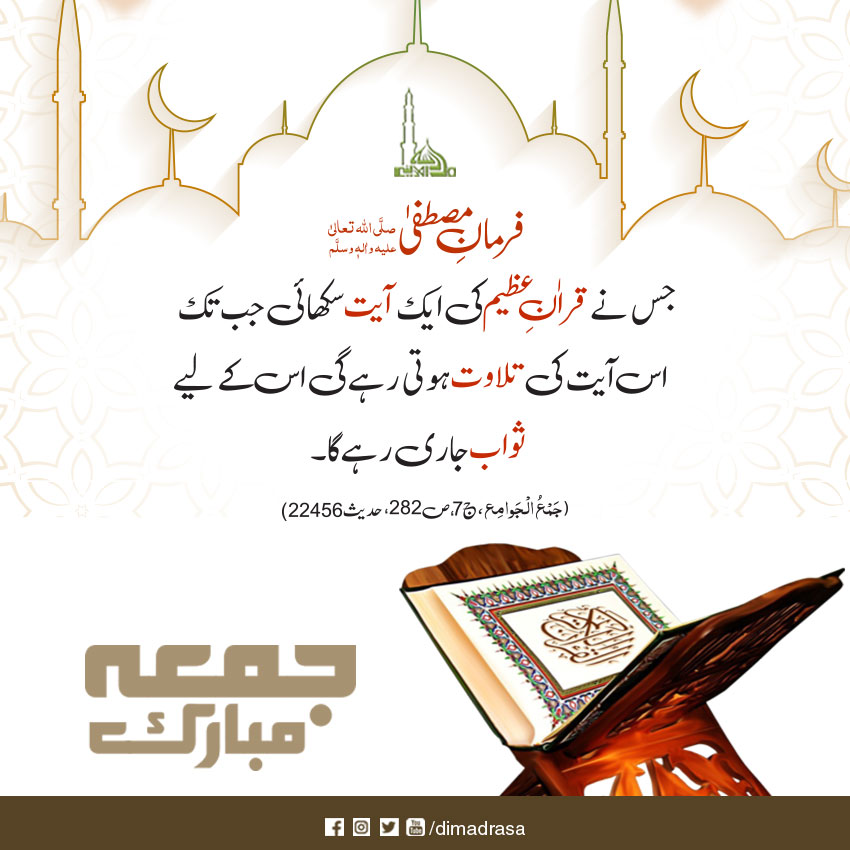 فرمانِ مصطفیٰ صلَّی اللہ تعالیٰ علیہ واٰلہٖ وسلَّم
جس نے قراٰنِ عظیم کی ایک آیت سکھائی جب تک
اس آیت کی تلاوت ہوتی رہے گی اس کے لیے
ثواب جاری رہے گا۔
(جَمْعُ الْجَوامِع، ج7،ص282، حدیث22456)
جمعہ
مبارک
/dimadrasa